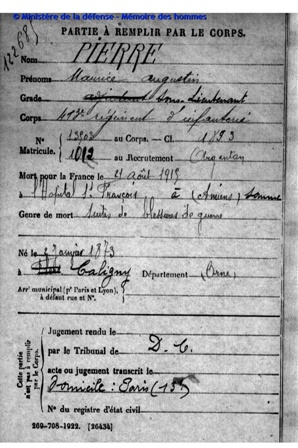 © Ministère de la défense - Mémoire des hommes
PARTIE À REMPLIR PAR LE CORPS.
Nom PIERRE
Prénoms Maurice Augustin
Grade adjudant Sous-Lieutenant
Corps régiment d'infanterie
N° 13903 au Corps. — Cl. 1893
Matricule. 1012 au Recrutement Argentan
Mort pour la France le 21 Août 1915
à l'Hôpital St François à (Amiens) Somme
Genre de mort Suites de blessures de guerre
Né le 2 Janvier 1873
à Caligny Département (Orne)
Arrt municipal (pr Paris et Lyon),
à défaut rue et N°.
Cette partie
n'est pas à remplir
par le Corps.
Jugement rendu le
par le Tribunal de D. C.
acte ou jugement transcrit le
Domicile : Paris (15e)
N° du registre d'état civil
269-708-1922. [26434]